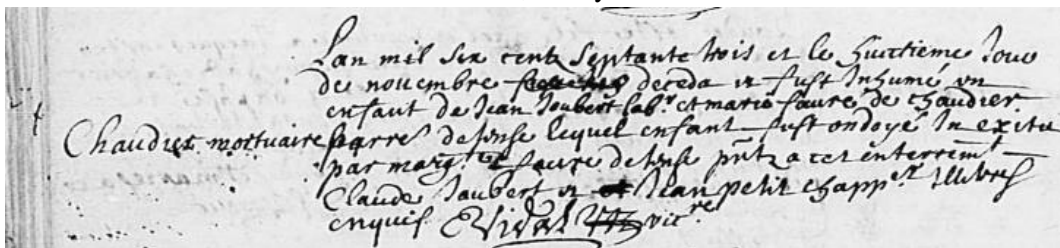 Lan mil six cent septante trois et le huictieme jour
de novembre deceda et fust Inhumé un
enfant de Jean Joubert lab.r et marie faure de chaudier
Chaudier mortuaire parre lequel enfant fust ondoyé In exitu
par marg.te faure p.ntz a cet enterrem.t
Claude Jaubert et Jean petit chapp.r illitres
enquis EVidal vic.re